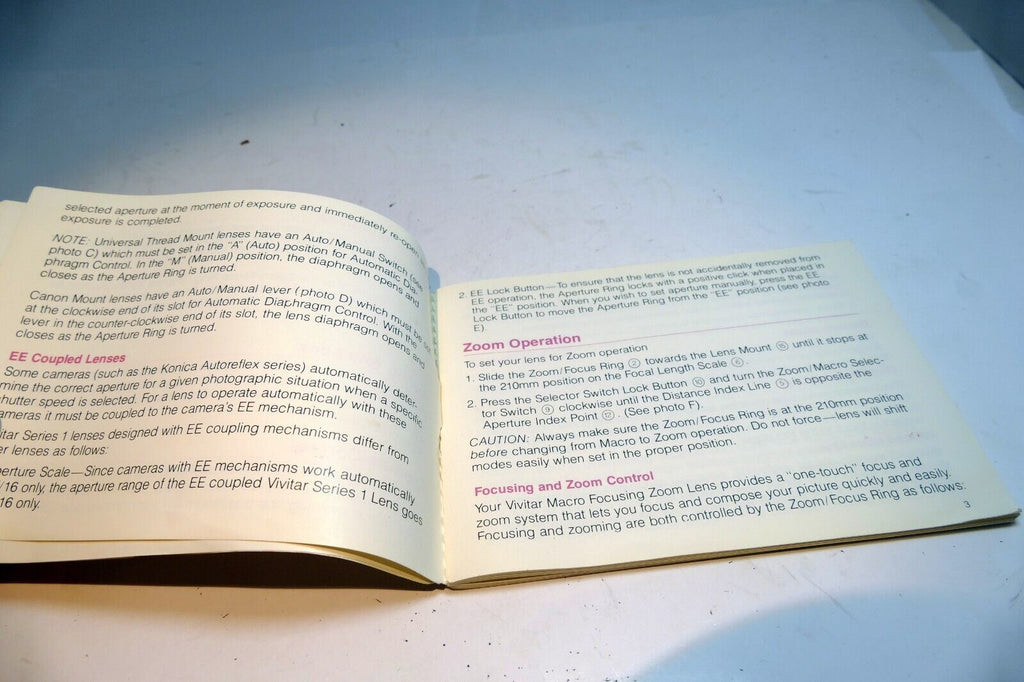 selected aperture at the moment of exposure and immediately re-opens
exposure is completed.
NOTE: Universal Thread Mount lenses have an Auto/Manual Switch (see
photo C) which must be set in the "A" (Auto) position for Automatic Dia-
phragm Control. In the "M" (Manual) position, the diaphragm opens and
closes as the Aperture Ring is turned.
Canon Mount lenses have an Auto/Manual lever (photo D) which must be set
at the clockwise end of its slot for Automatic Diaphragm Control. With the
lever in the counter-clockwise end of its slot, the lens diaphragm opens and
closes as the Aperture Ring is turned.
EE Coupled Lenses
Some cameras (such as the Konica Autoreflex series) automatically deter-
mine the correct aperture for a given photographic situation when a specific
hutter speed is selected. For a lens to operate automatically with these
ameras it must be coupled to the camera's EE mechanism.
itar Series 1 lenses designed with EE coupling mechanisms differ from
er lenses as follows:
erture Scale—Since cameras with EE mechanisms work automatically
/16 only, the aperture range of the EE coupled Vivitar Series 1 Lens goes
16 only.
2. EE Lock Button—To ensure that the lens is not accidentally removed from
EE operation, the Aperture Ring locks with a positive click when placed in
the "EE" position. When you wish to set aperture manually, press the EE
Lock Button to move the Aperture Ring from the "EE" position (see photo
E).
Zoom Operation
To set your lens for Zoom operation
1. Slide the Zoom/Focus Ring ② towards the Lens Mount ⑯ until it stops at
the 210mm position on the Focal Length Scale ⑥.
2. Press the Selector Switch Lock Button ⑩ and turn the Zoom/Macro Selec-
tor Switch ⑨ clockwise until the Distance Index Line ⑤ is opposite the
Aperture Index Point ⑫. (See photo F).
CAUTION: Always make sure the Zoom/Focus Ring is at the 210mm position
before changing from Macro to Zoom operation. Do not force—lens will shift
modes easily when set in the proper position.
Focusing and Zoom Control
Your Vivitar Macro Focusing Zoom Lens provides a "one-touch" focus and
zoom system that lets you focus and compose your picture quickly and easily.
Focusing and zooming are both controlled by the Zoom/Focus Ring as follows:
3